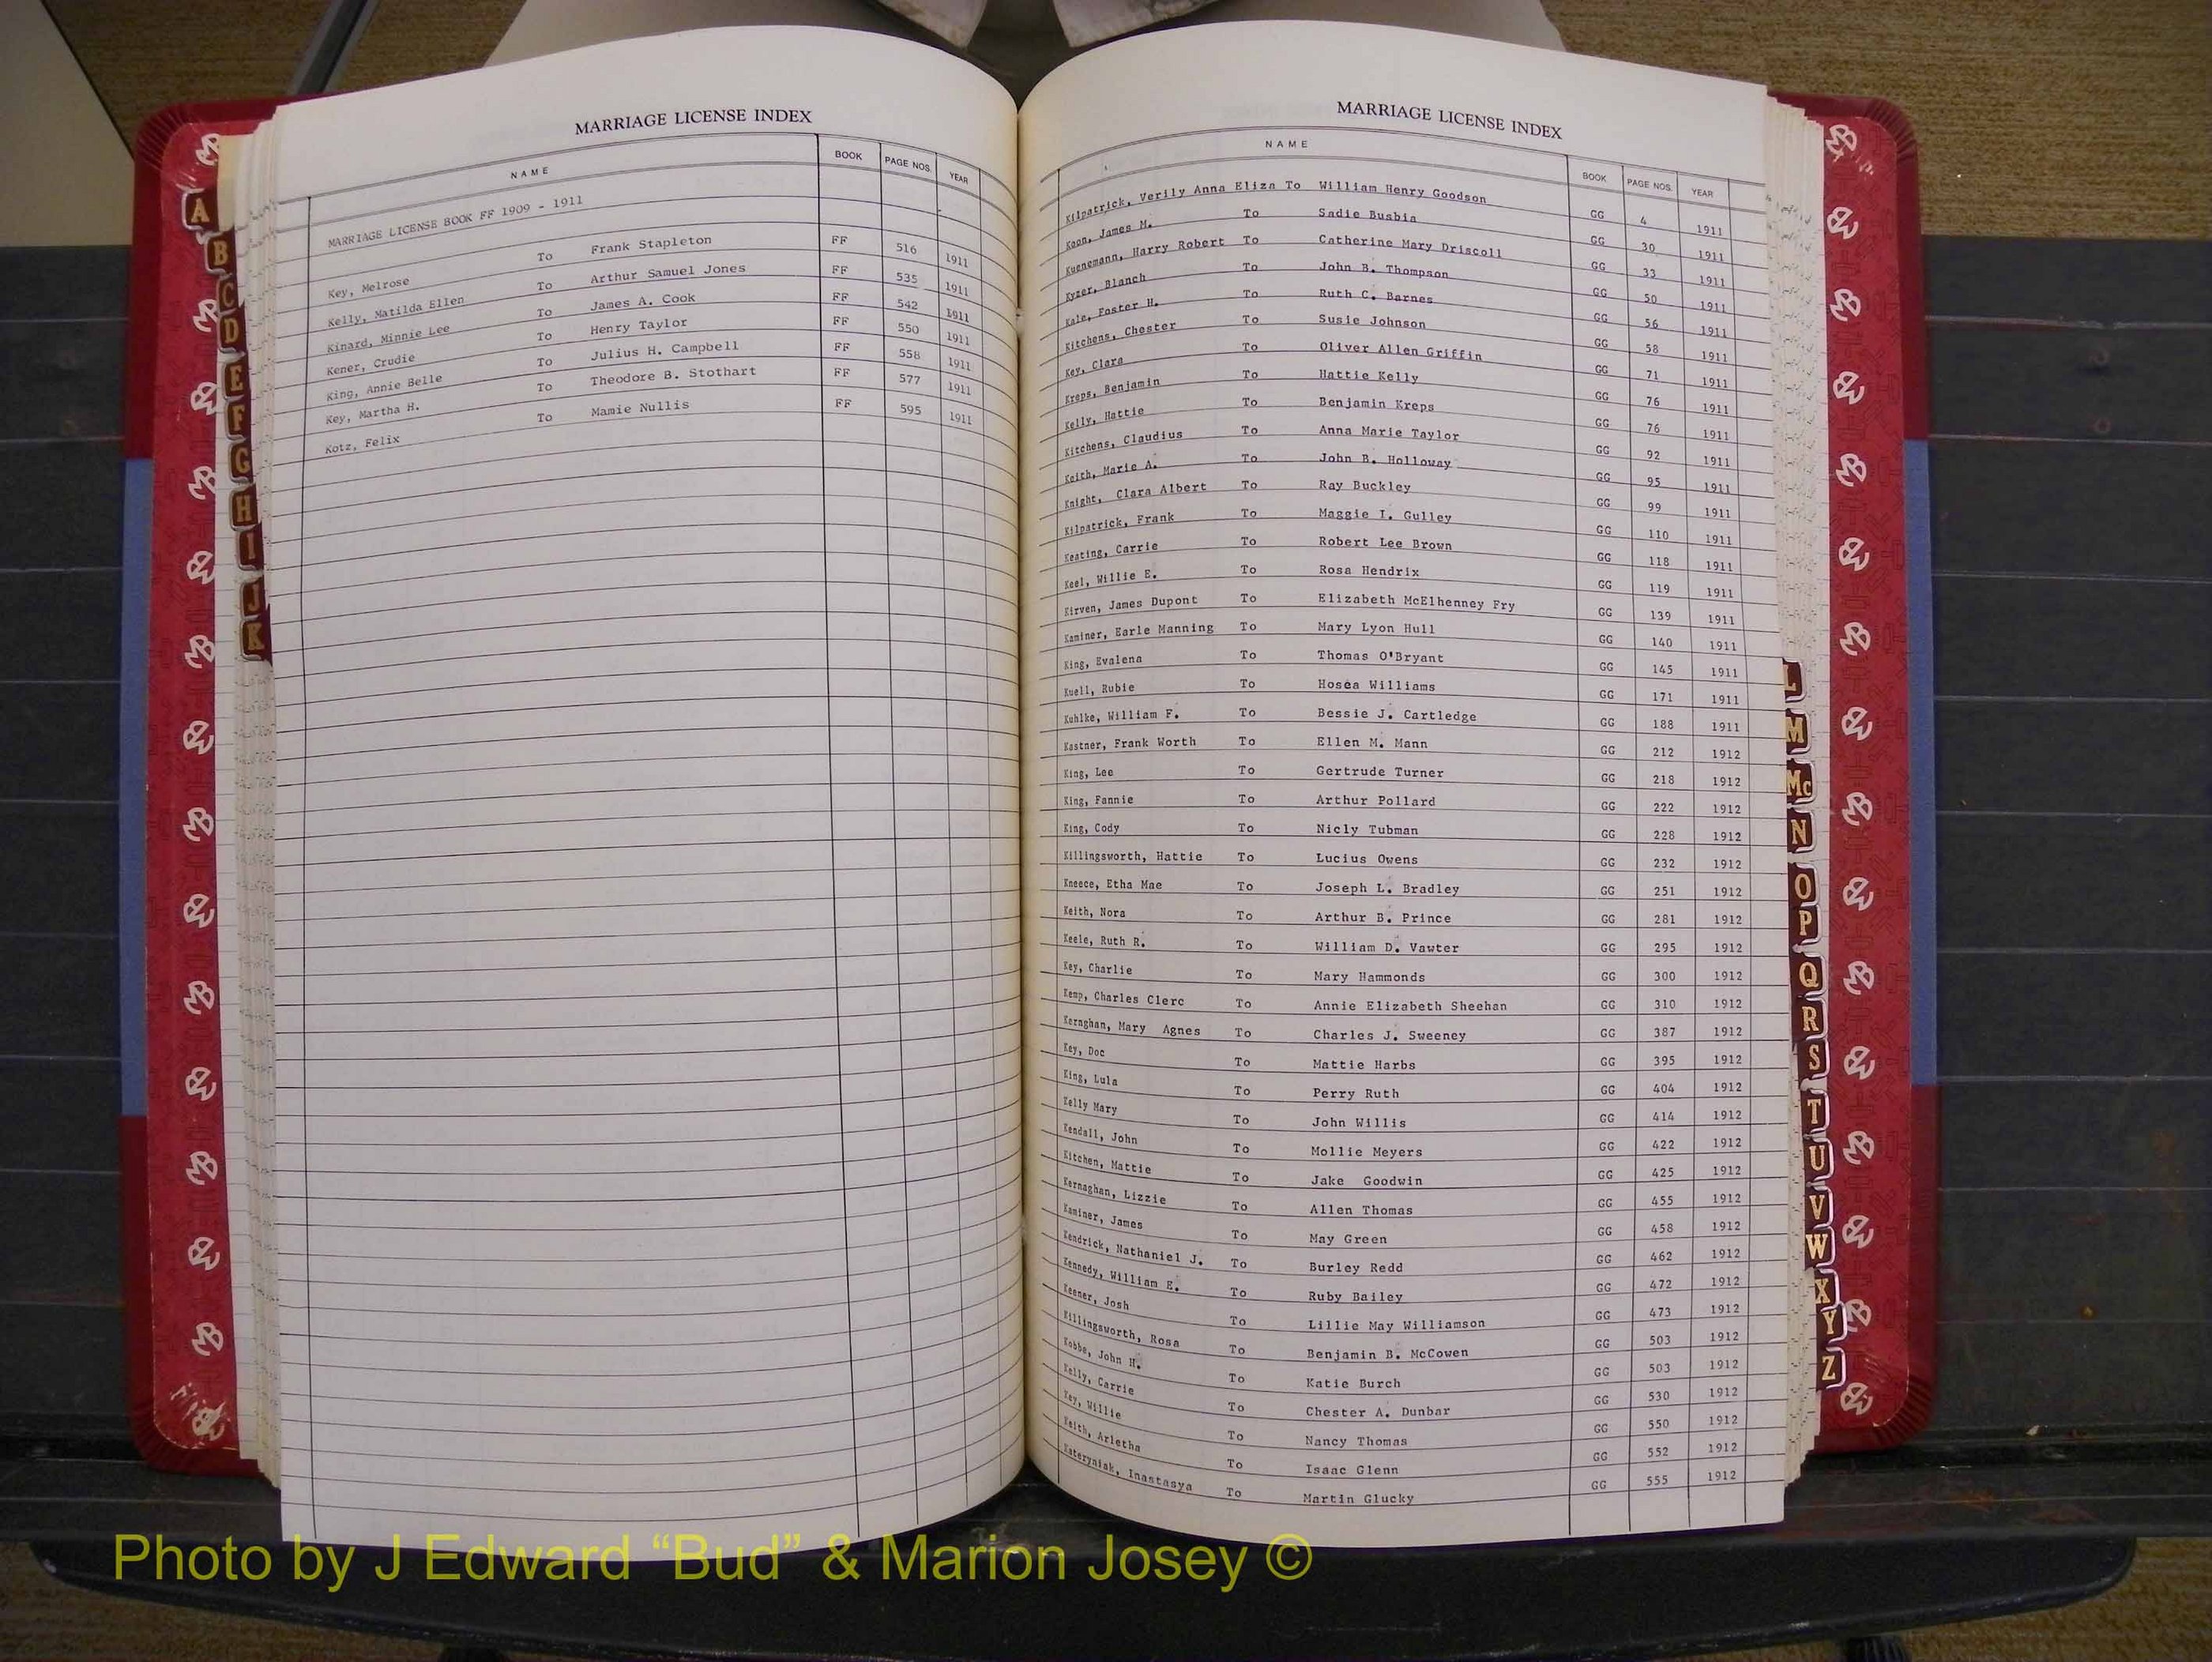 MARRIAGE LICENSE INDEX
NAME BOOK PAGE NOS. YEAR
MARRIAGE LICENSE BOOK FF 1909 - 1911
Key, Melrose To Frank Stapleton FF 516 1911
Kelly, Matilda Ellen To Arthur Samuel Jones FF 535 1911
Kinard, Minnie Lee To James A. Cook FF 542 1911
Kener, Crudie To Henry Taylor FF 550 1911
King, Annie Belle To Julius H. Campbell FF 558 1911
Key, Martha H. To Theodore B. Stothart FF 577 1911
Kotz, Felix To Mamie Nullis FF 595 1911
MARRIAGE LICENSE INDEX
NAME BOOK PAGE NOS. YEAR
Kilpatrick, Verily Anna Eliza To William Henry Goodson GG 4 1911
Koon, James M. To Sadie Busbia GG 30 1911
Kuenemann, Harry Robert To Catherine Mary Driscoll GG 33 1911
Kyzer, Blanch To John B. Thompson GG 50 1911
Kale, Foster H. To Ruth C. Barnes GG 56 1911
Kitchens, Chester To Susie Johnson GG 58 1911
Key, Clara To Oliver Allen Griffin GG 71 1911
Kreps, Benjamin To Hattie Kelly GG 76 1911
Kelly, Hattie To Benjamin Kreps GG 76 1911
Kitchens, Claudius To Anna Marie Taylor GG 92 1911
Keith, Marie A. To John B. Holloway GG 95 1911
Knight, Clara Albert To Ray Buckley GG 99 1911
Kilpatrick, Frank To Maggie I. Gulley GG 110 1911
Keating, Carrie To Robert Lee Brown GG 118 1911
Keel, Willie E. To Rosa Hendrix GG 119 1911
Kirven, James Dupont To Elizabeth McElhenney Fry GG 139 1911
Kaminer, Earle Manning To Mary Lyon Hull GG 140 1911
King, Evalena To Thomas O'Bryant GG 145 1911
Kuell, Rubie To Hosea Williams GG 171 1911
Kuhlke, William F. To Bessie J. Cartledge GG 188 1911
Kastner, Frank Worth To Ellen M. Mann GG 212 1912
King, Lee To Gertrude Turner GG 218 1912
King, Fannie To Arthur Pollard GG 222 1912
King, Cody To Nicly Tubman GG 228 1912
Killingsworth, Hattie To Lucius Owens GG 232 1912
Kneece, Etha Mae To Joseph L. Bradley GG 251 1912
Keith, Nora To Arthur B. Prince GG 281 1912
Keele, Ruth R. To William D. Vawter GG 295 1912
Key, Charlie To Mary Hammonds GG 300 1912
Kemp, Charles Clerc To Annie Elizabeth Sheehan GG 310 1912
Kernghan, Mary Agnes To Charles J. Sweeney GG 387 1912
Key, Doc To Mattie Harbs GG 395 1912
King, Lula To Perry Ruth GG 404 1912
Kelly Mary To John Willis GG 414 1912
Kendall, John To Mollie Meyers GG 422 1912
Kitchen, Mattie To Jake Goodwin GG 425 1912
Kernaghan, Lizzie To Allen Thomas GG 455 1912
Kaminer, James To May Green GG 458 1912
Kendrick, Nathaniel J. To Burley Redd GG 462 1912
Kennedy, William E. To Ruby Bailey GG 472 1912
Keener, Josh To Lillie May Williamson GG 473 1912
Killingsworth, Rosa To Benjamin B. McCowen GG 503 1912
Kobbe, John H. To Katie Burch GG 503 1912
Kelly, Carrie To Chester A. Dunbar GG 530 1912
Key, Willie To Nancy Thomas GG 550 1912
Keith, Arletha To Isaac Glenn GG 552 1912
Kateryniak, Inastasya To Martin Glucky GG 555 1912
A
B
C
D
E
F
G
H
I
J
K
L
M
Mc
N
O
P
Q
R
S
T
U
V
W
X
Y
Z
Photo by J Edward “Bud” & Marion Josey ©